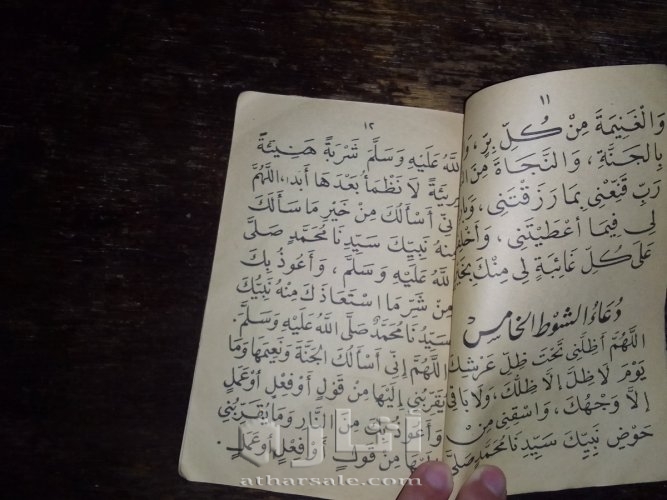 ١١
وَالْغَنِيمَةَ مِنْ كُلِّ بِرٍّ، وَ
بِالْجَنَّةِ، وَالنَّجَاةَ مِنَ
رَبِّ قَنِّعْنِي بِمَا رَزَقْتَنِي، وَبَا
لِي فِيمَا أَعْطَيْتَنِي، وَاخْلُفْ
عَلَى كُلِّ غَائِبَةٍ لِي مِنْكَ بِخَيْرٍ
دُعَاءُ الشَّوْطِ الْخَامِسِ
اللَّهُمَّ أَظِلَّنِي تَحْتَ ظِلِّ عَرْشِكَ
يَوْمَ لَا ظِلَّ إِلَّا ظِلُّكَ، وَلَا بَاقِيَ
إِلَّا وَجْهُكَ، وَاسْقِنِي مِنْ
حَوْضِ نَبِيِّكَ سَيِّدِنَا مُحَمَّدٍ صَلَّى
١٢
اللَّهُ عَلَيْهِ وَسَلَّمَ شَرْبَةً هَنِيئَةً
لَا نَظْمَأُ بَعْدَهَا أَبَدًا، اللَّهُمَّ
إِنِّي أَسْأَلُكَ مِنْ خَيْرِ مَا سَأَلَكَ
مِنْهُ نَبِيُّكَ سَيِّدُنَا مُحَمَّدٌ صَلَّى
اللَّهُ عَلَيْهِ وَسَلَّمَ، وَأَعُوذُ بِكَ
مِنْ شَرِّ مَا اسْتَعَاذَكَ مِنْهُ نَبِيُّكَ
سَيِّدُنَا مُحَمَّدٌ صَلَّى اللَّهُ عَلَيْهِ وَسَلَّمَ.
اللَّهُمَّ إِنِّي أَسْأَلُكَ الْجَنَّةَ وَنَعِيمَهَا وَمَا
يُقَرِّبُنِي إِلَيْهَا مِنْ قَوْلٍ أَوْ فِعْلٍ أَوْ عَمَلٍ
وَأَعُوذُ بِكَ مِنَ النَّارِ وَمَا يُقَرِّبُنِي
إِلَيْهَا مِنْ قَوْلٍ أَوْ فِعْلٍ أَوْ عَمَلٍ.
atharsale.com